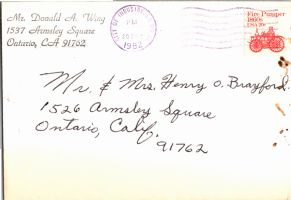 Mr. Donald A. Wray
1537 Armsley Square
Ontario, CA 91762
CITY OF INDUSTRY
PM
1982
Fire Pumper
1860s
USA 20c
Mr. & Mrs. Henry O. Brayford.
1526 Armsley Square
Ontario, Calif.
91762